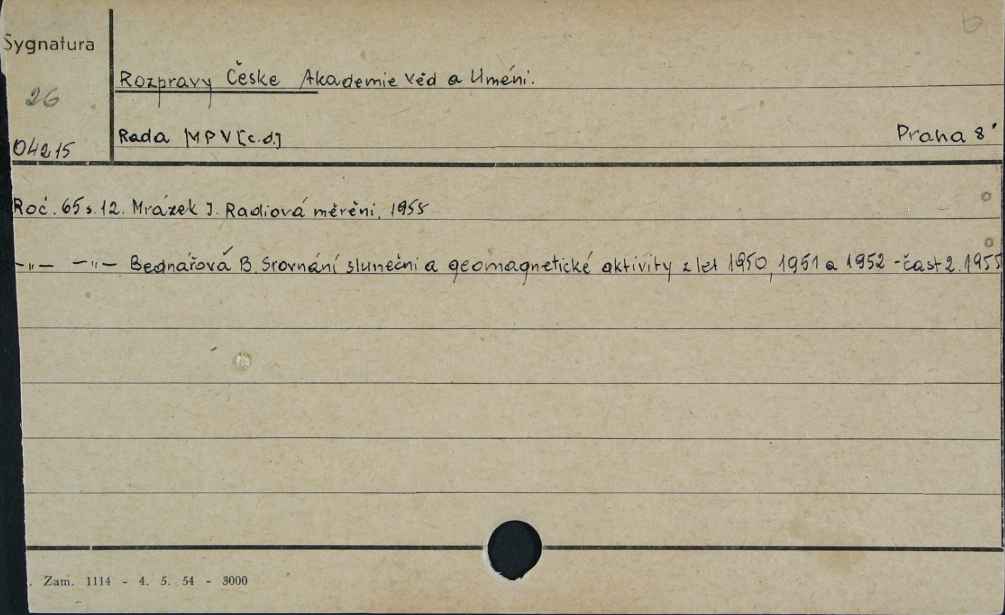 Sygnatura
6
Rozpravy Česke Akademie věd a Uměni.
26
04215
Rada MPV [c.d.] Praha 8°
Roč. 65 s. 12. Mrázek J. Radiová měrěni, 1955
-"- -"- Bednařová B. Srovnání slunečni a geomagnetické aktivity z let 1950, 1951 a 1952 - část 2. 1955
Zam. 1114 - 4. 5. 54 - 3000